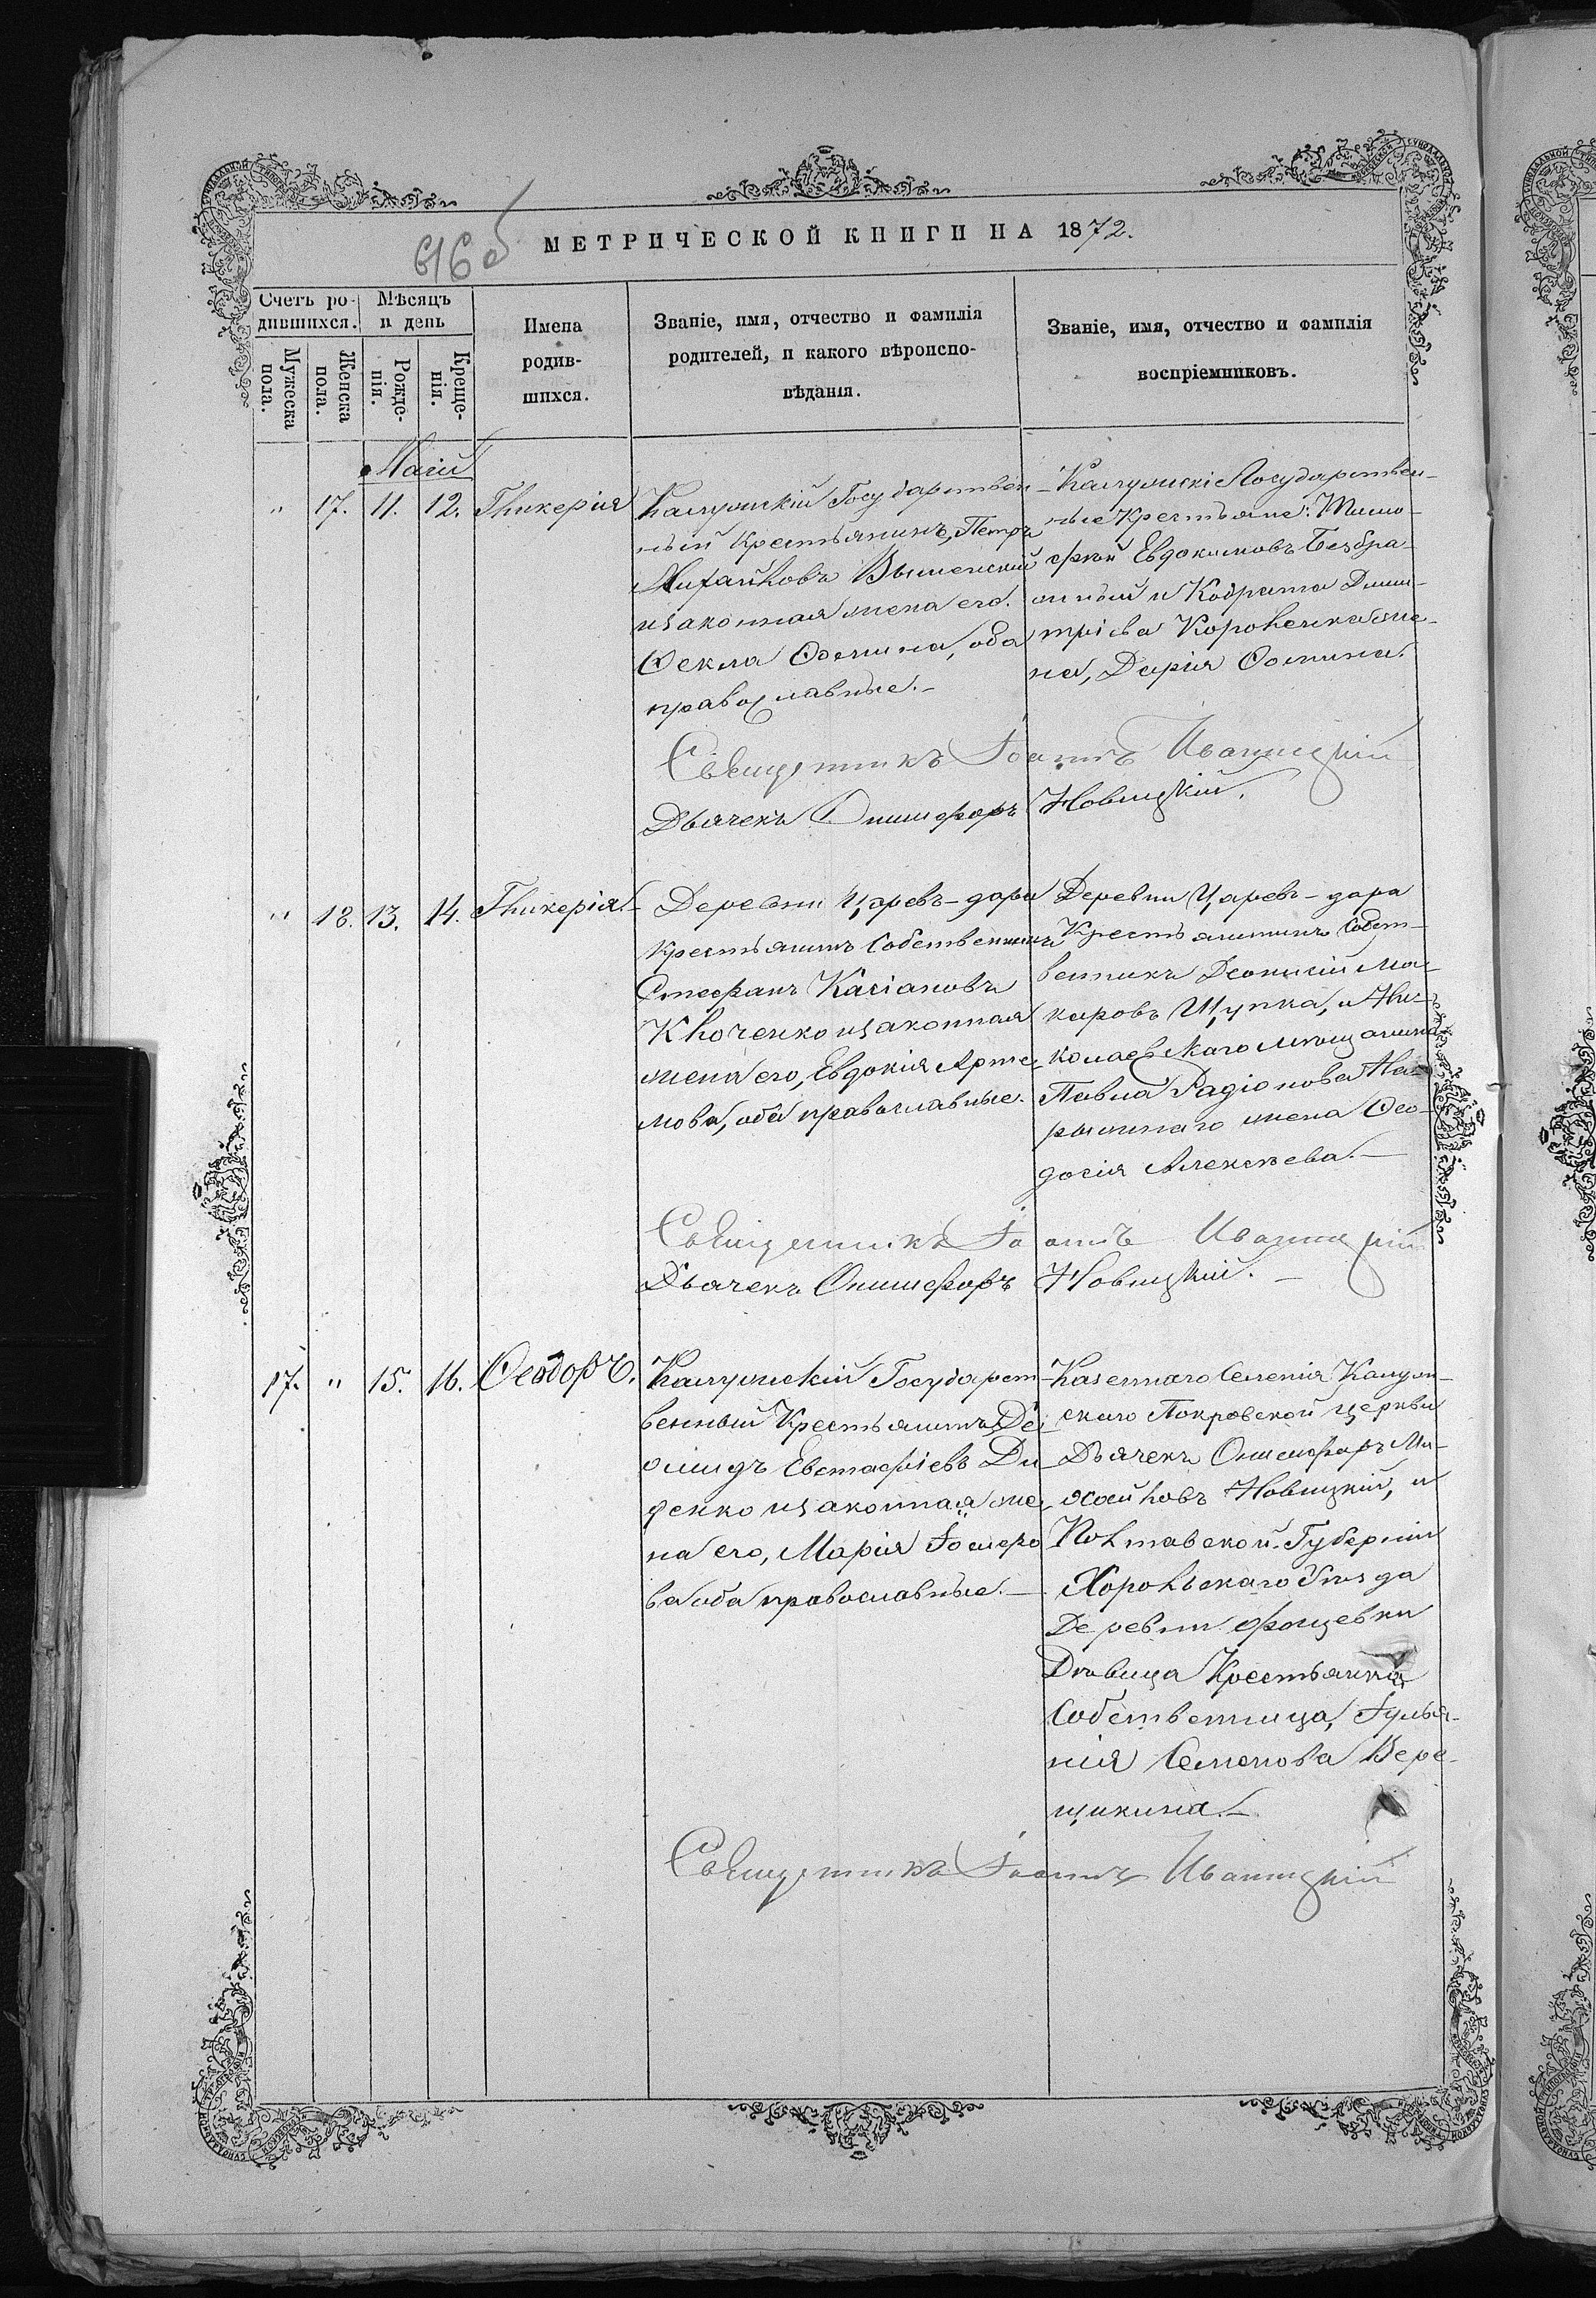 616об
МЕТРИЧЕСКОЙ КНИГИ НА 1872.
Счетъ ро-
дившихся.
Мѣсяцъ
и день
Мужеска
пола.
Женска
пола.
Рожде-
нія.
Креще-
нія.
Имена
родив-
шихся.
Званіе, имя, отчество и фамилія
родителей, и какого вѣроиспо-
вѣданія.
Званіе, имя, отчество и фамилія
воспріемниковъ.
Маій
" 17. 11. 12. Гликерія
Калужскій Государствен-
ный Крестьянинъ, Петръ
Михайловъ
изаконная жена его.
Фекла Фомина, оба
православные.-
Калужскіе Государствен-
ные Крестьяне: Тимо-
фей Евдокимовъ Безбра-
жный и Кодрата Дими-
тріева Короленка же-
на, Дарія Фомина.
Священникъ Іоаннъ Иваницкій
Дьячекъ Онисифоръ Новицкій.
" 18. 13. 14. Гликерія.-
Деревни Царевъ-дара
крестьянинъ Собственникъ
Стефанъ Касіановъ
Клоченко изаконная
жена его, Евдокія Арте-
мова, оба православные.
Деревни Царевъ-дара
Крестьянинъ Собст-
венникъ Діонисій Ма-
каровъ Щупка, и Ни-
колаевскаго мѣщанина
Павла Радіонова На-
рыжнаго жена Фео-
досія Алексѣева.-
Священникъ Іоаннъ Иваницкій
Дьячекъ Онисифоръ Новицкій.-
17. " 15. 16. Феодоръ.
Калужскій Государст-
венный Крестьянинъ Ді-
омидъ Евстафіевъ Ди-
денко изаконная же-
на его, Марія
ва оба православные.-
Казеннаго Селенія Калуж-
скаго Покровской церкви
Дьячекъ Онисифоръ Ми-
хайловъ Новицкій, и
Полтавской Губерніи
Хорольскаго Уѣзда
Деревни
Дѣвица Крестьянка
Собственница, Іулья-
нія Семенова Вере-
щикина.-
Священникъ Іоаннъ Иваницкій